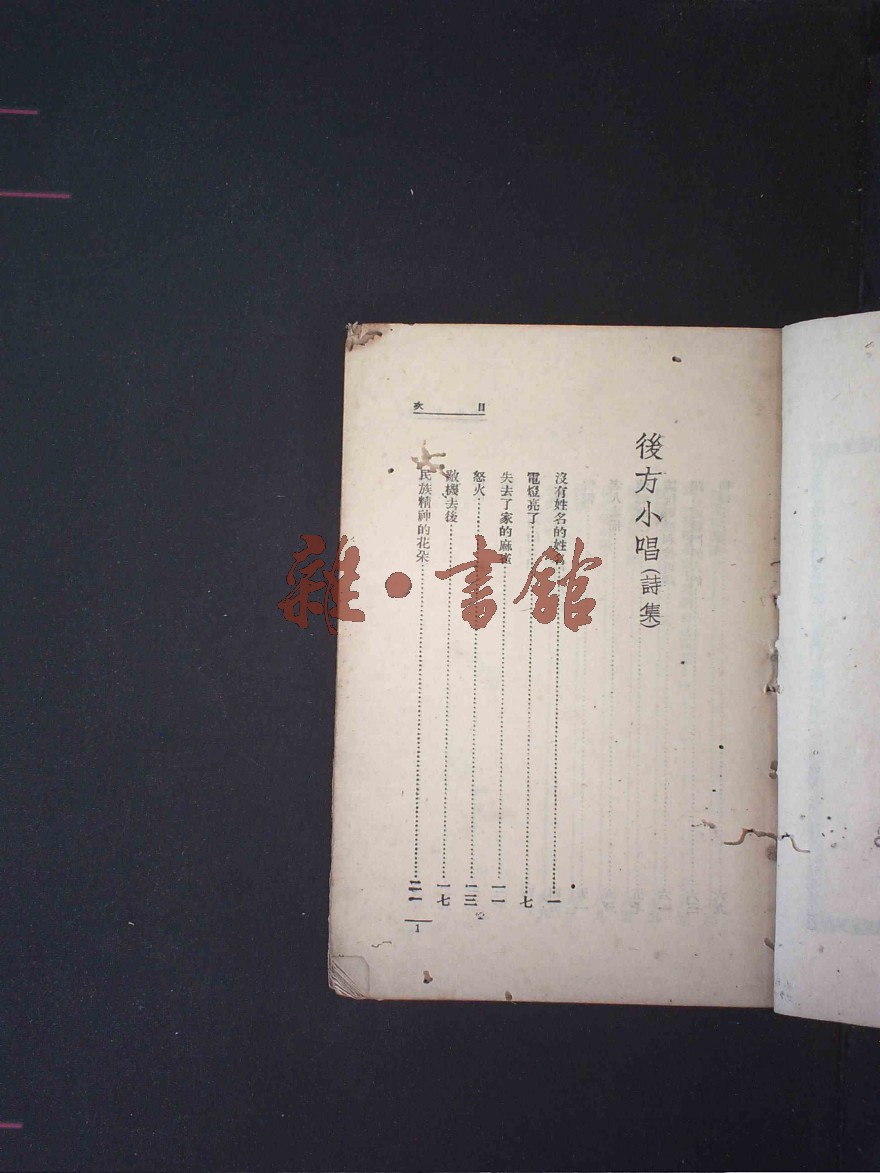 目次
後方小唱(詩集)
沒有姓名的姓……一
電燈亮了……七
失去了家的麻雀……一一
怒火……一三
敵機去後……一七
民族精神的花朵……二一
1
雜·書館